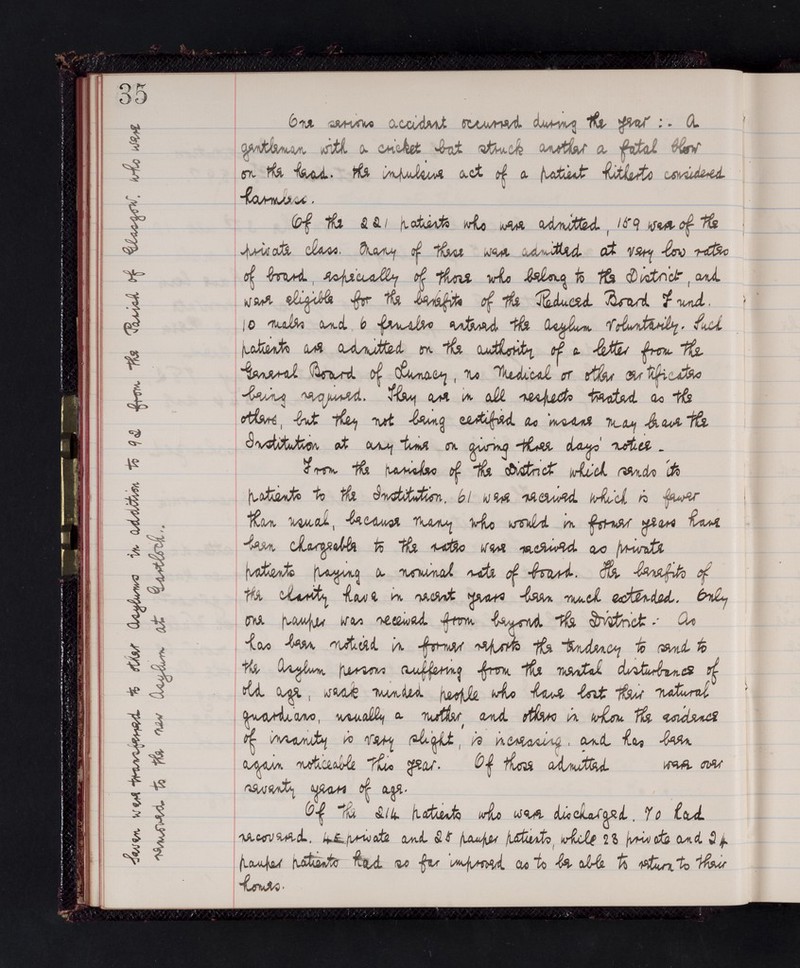 35
One serious accident occurred during the year :- A
gentleman with a cricket bat struck another a fatal blow
on the head. the impulsive act of a patient hitherto considered
harmless.
Of the 221 patients who were admitted, 159 were of the
private class. Many of these were admitted at very low rates
of board, especially of those who belong to the District, and
were eligible for the benefits of the Reduced Board Fund.
10 males and 6 females entered the Asylum voluntarily. Such
patients are admitted on the authority of a letter from the
General Board of Lunacy, no Medical or other certificates
being required. They are in all respects treated as the
others, but they not being certified as insane may leave the
Institution at any time on giving three days' notice.
From the parishes of the District which sends its
patients to the Institution. 61 were received which is fewer
than usual, because many who would in former years have
been chargeable to the rates were received as private
patients paying a nominal rate of board. The benefits of
the charity have in recent years been much extended. Only
one pauper was received from beyond the District :- As
has been noticed in former reports the tendency to send to
the Asylum persons suffering from the mental disturbance of
old age, weak minded people who have lost their natural
guardians, usually a mother, and others in whom the evidence
of insanity is very slight, is increasing. and has been
again noticeable this year. Of those admitted were over
seventy years of age.
Of the 214 patients who were discharged. 70 had
recovered. 42 private and 28 pauper patients, while 23 private and 24
pauper patients had so far improved as to be able to return to their
homes.
Seven were transferred to other Asylums in addition to 92 from the Parish of Glasgow, who were
removed to the new Asylum at Gartloch..